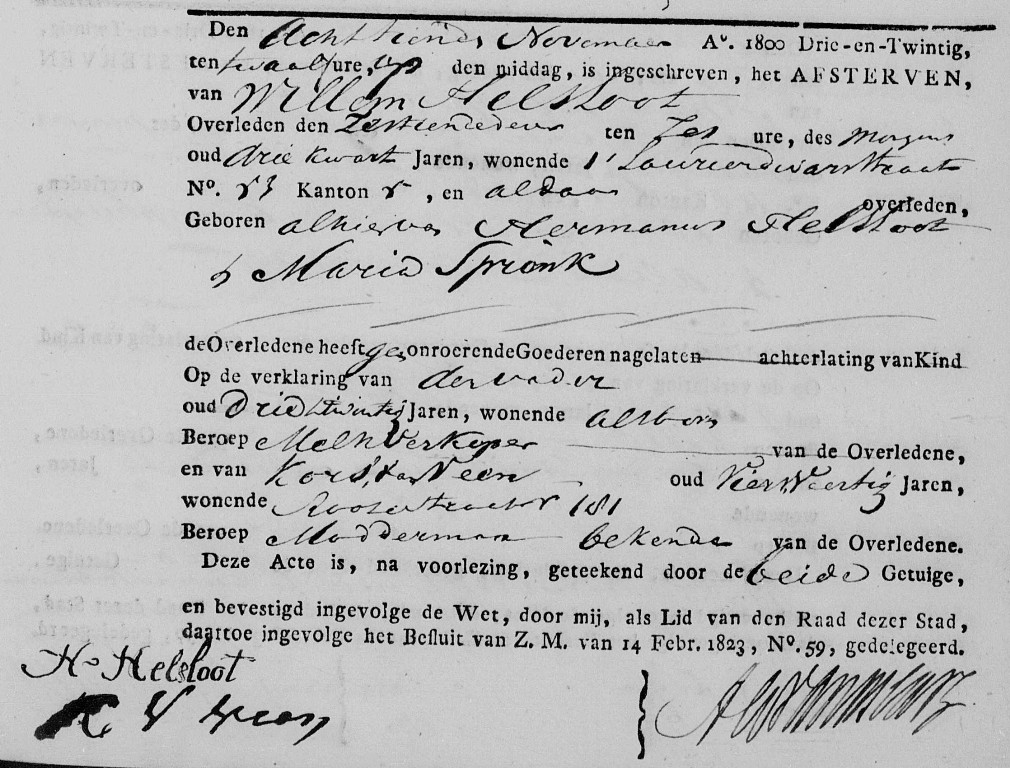 Den Achttiende November Aº. 1800 Drie-en-Twintig,
ten twaalf ure, op den middag, is ingeschreven, het AFSTERVEN,
van Willem Helsloot
Overleden den Zestiendedezer ten Zes ure, des morgens
oud drie kwart Jaren, wonende Laurierdwarsstraat
Nº. 53 Kanton 5, en aldaar overleden,
Geboren alhier van Hermanus Helsloot
& Maria Spronk
de Overledene heeft geen onroerende Goederen nagelaten achterlating van Kind
Op de verklaring van der vader
oud Drie & twintig Jaren, wonende alsboven
Beroep Melkverkoper van de Overledene,
en van Kors van Veen oud Vier & Veertig Jaren,
wonende Roosestraat 181
Beroep Modderman bekende van de Overledene.
Deze Acte is, na voorlezing, geteekend door de beide Getuige,
en bevestigd ingevolge de Wet, door mij, als Lid van den Raad dezer Stad,
daartoe ingevolge het Besluit van Z. M. van 14 Febr. 1823, Nº. 59, gedelegeerd.
H Helsloot
K V Veen